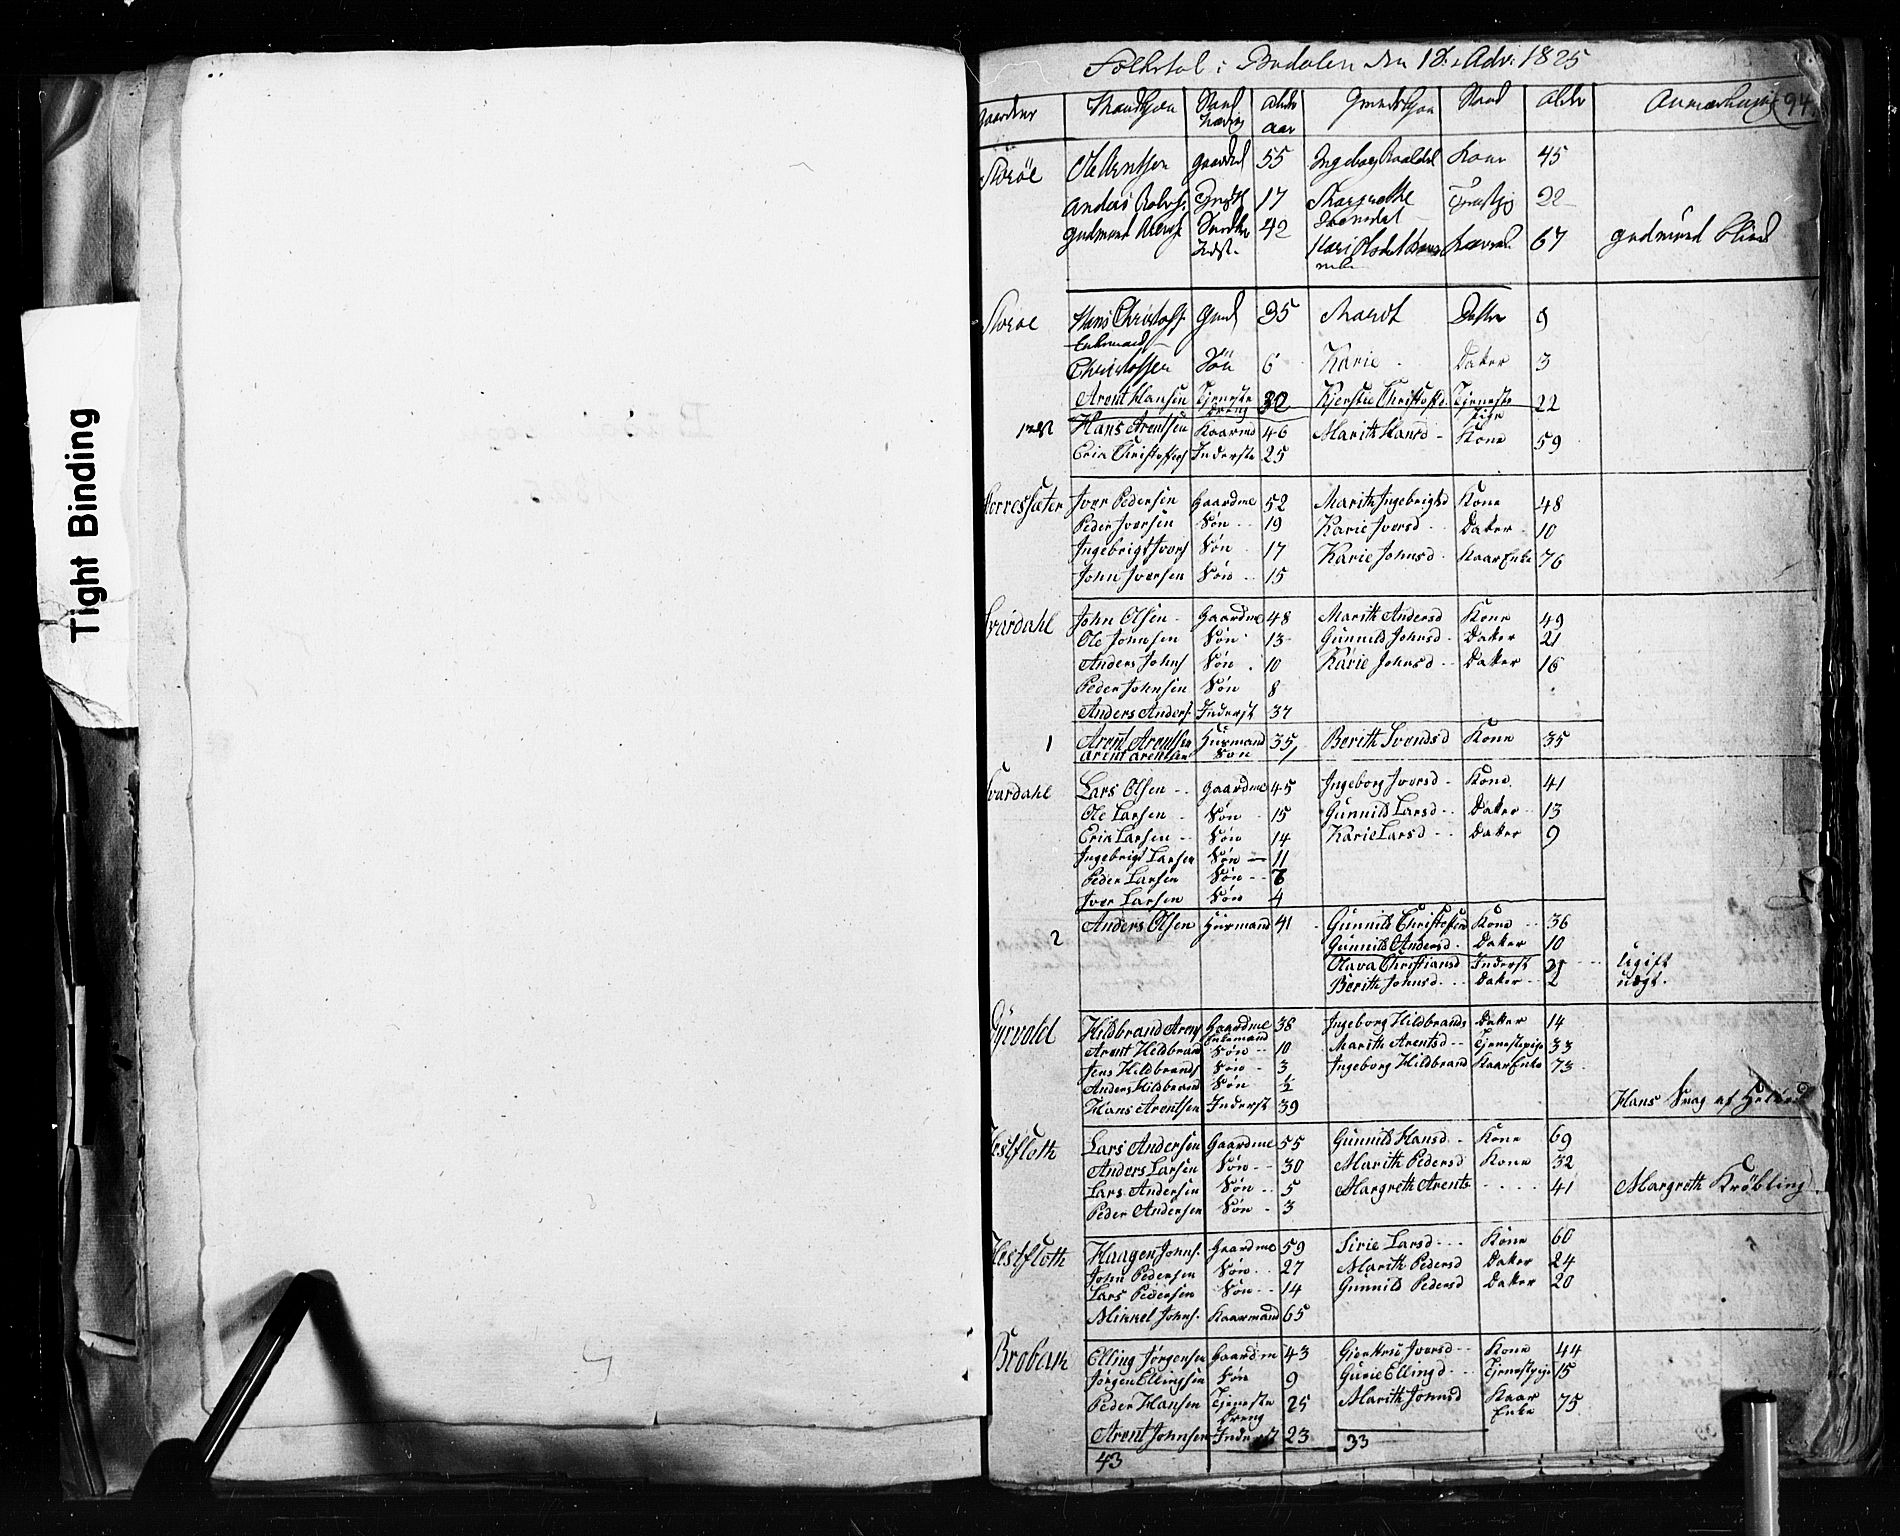 Tight Binding
Folketal i Budalen 1825
Gaardene Mandkjøn Stand Alder aar Qvindekjøn Stand Alder Anmærkning 94
Storøe Ole Arntsen Gaardm 55 Ingeborg Kone 45
Anders 17 22
Gudmund 42
67 Gudmund blind
Storøe Hans Christofs. 35 Marit Datter
Enkemand
Christoffer Søn 6 Karie Datter 3
Arent Hansen Tjeneste dreng 32 Kjerstie Christofsd. Tjeneste Pige 22
Hans Arentsen Kaarmd 46 Marith Hansd Kone 59
Eric Christoffers Inderste 25
Iver Pedersen Gaardme 52 Marith Ingebrigtsd Kone 48
Peder Iversen Søn 19 Karie Iversd Dater 10
Ingebrigt Ivers Søn 17 Karie Johnsd. KaarEnke 76
John Iversen Søn 15
Svardahl John Olsen Gaardme 48 Marith Andersd Kone 49
Ole Johnsen Søn 13 Gunnild Johnsd. Dater 21
Anders Johns Søn 10 Karie Johnsd Dater 16
Peder Johnsen Søn 8
Anders Anders. Inderst 37
1 Arent Arentsen Husmand 35 Berith Svendsd Kone 35
Arent Arentsen Søn 1
Svardahl Lars Olsen Gaardme 45 Ingeborg Iversd Kone 41
Ole Larsen Søn 15 Gunnild Larsd Dater 13
Eric Larsen Søn 14 Karie Larsd Dater 9
Ingebrigt Larsen Søn 11
Peder Larsen Søn
Iver Larsen Søn 4
2 Anders Olsen Husmand 41 Gunnild Christofsen Kone 36
Gunnild Andersd. Dater 10
Olava Christiansd Inderst Ugift
Berith Johnsd. Dater 2 uægt.
Hildbrand Arens Gaardme Enkemand 38 Ingeborg Hildbrands Dater 14
Arent Hildbrand Søn 10 Marith Arentsd Tjenestepige 33
Jens Hildbrands Søn 3 Ingeborg Hildbrand KaarEnke 73
Anders Hildbrand Søn ½
Hans Arentsen Inderst 39 Hans Svag af
Hestfloth Lars Andersen Gaardme 55 Gunnild Hansd. Kone 69
Anders Larsen Søn 30 Marith Pedersd Kone 32
Lars Andersen Søn 5 Margreth Arents 41 Margreth Krøbling
Peder Andersen Søn 3
Hestfloth Haagen Johns. Gaardme 59 Sirie Larsd Kone 60
John Pedersen Søn 27 Marith Pedersd Dater 24
Lars Pedersen Søn 14 Gunnild Pedersd Dater 20
Mikkel Johns. Kaarmand 65
Elling Jørgensen Gaardm 43 Iversd Kone 44
Jørgen Ellingsen Søn 9 Gurie Ellingd Tjenestpige 15
Peder Hansen Tjeneste dreng 25 Marith Johnsd Kaar Enke 75
Arent Johnsen Inderst 23 33
43